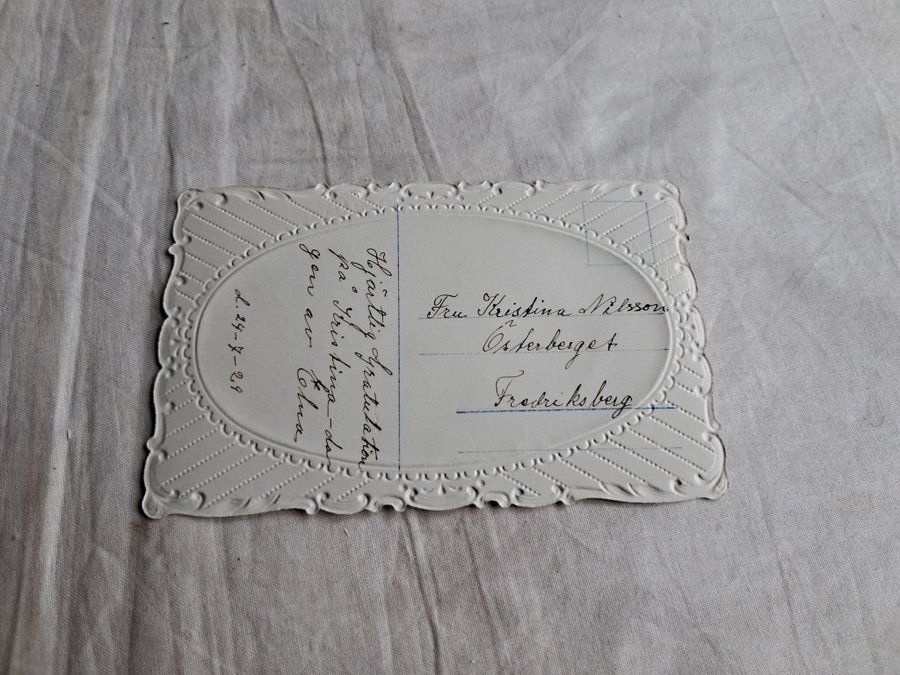 Hjärtlig Gratulation
på Kristina-da
gen av Elna
d. 24-7-29
Fru Kristina Nilsson
Österberget
Fredriksberg